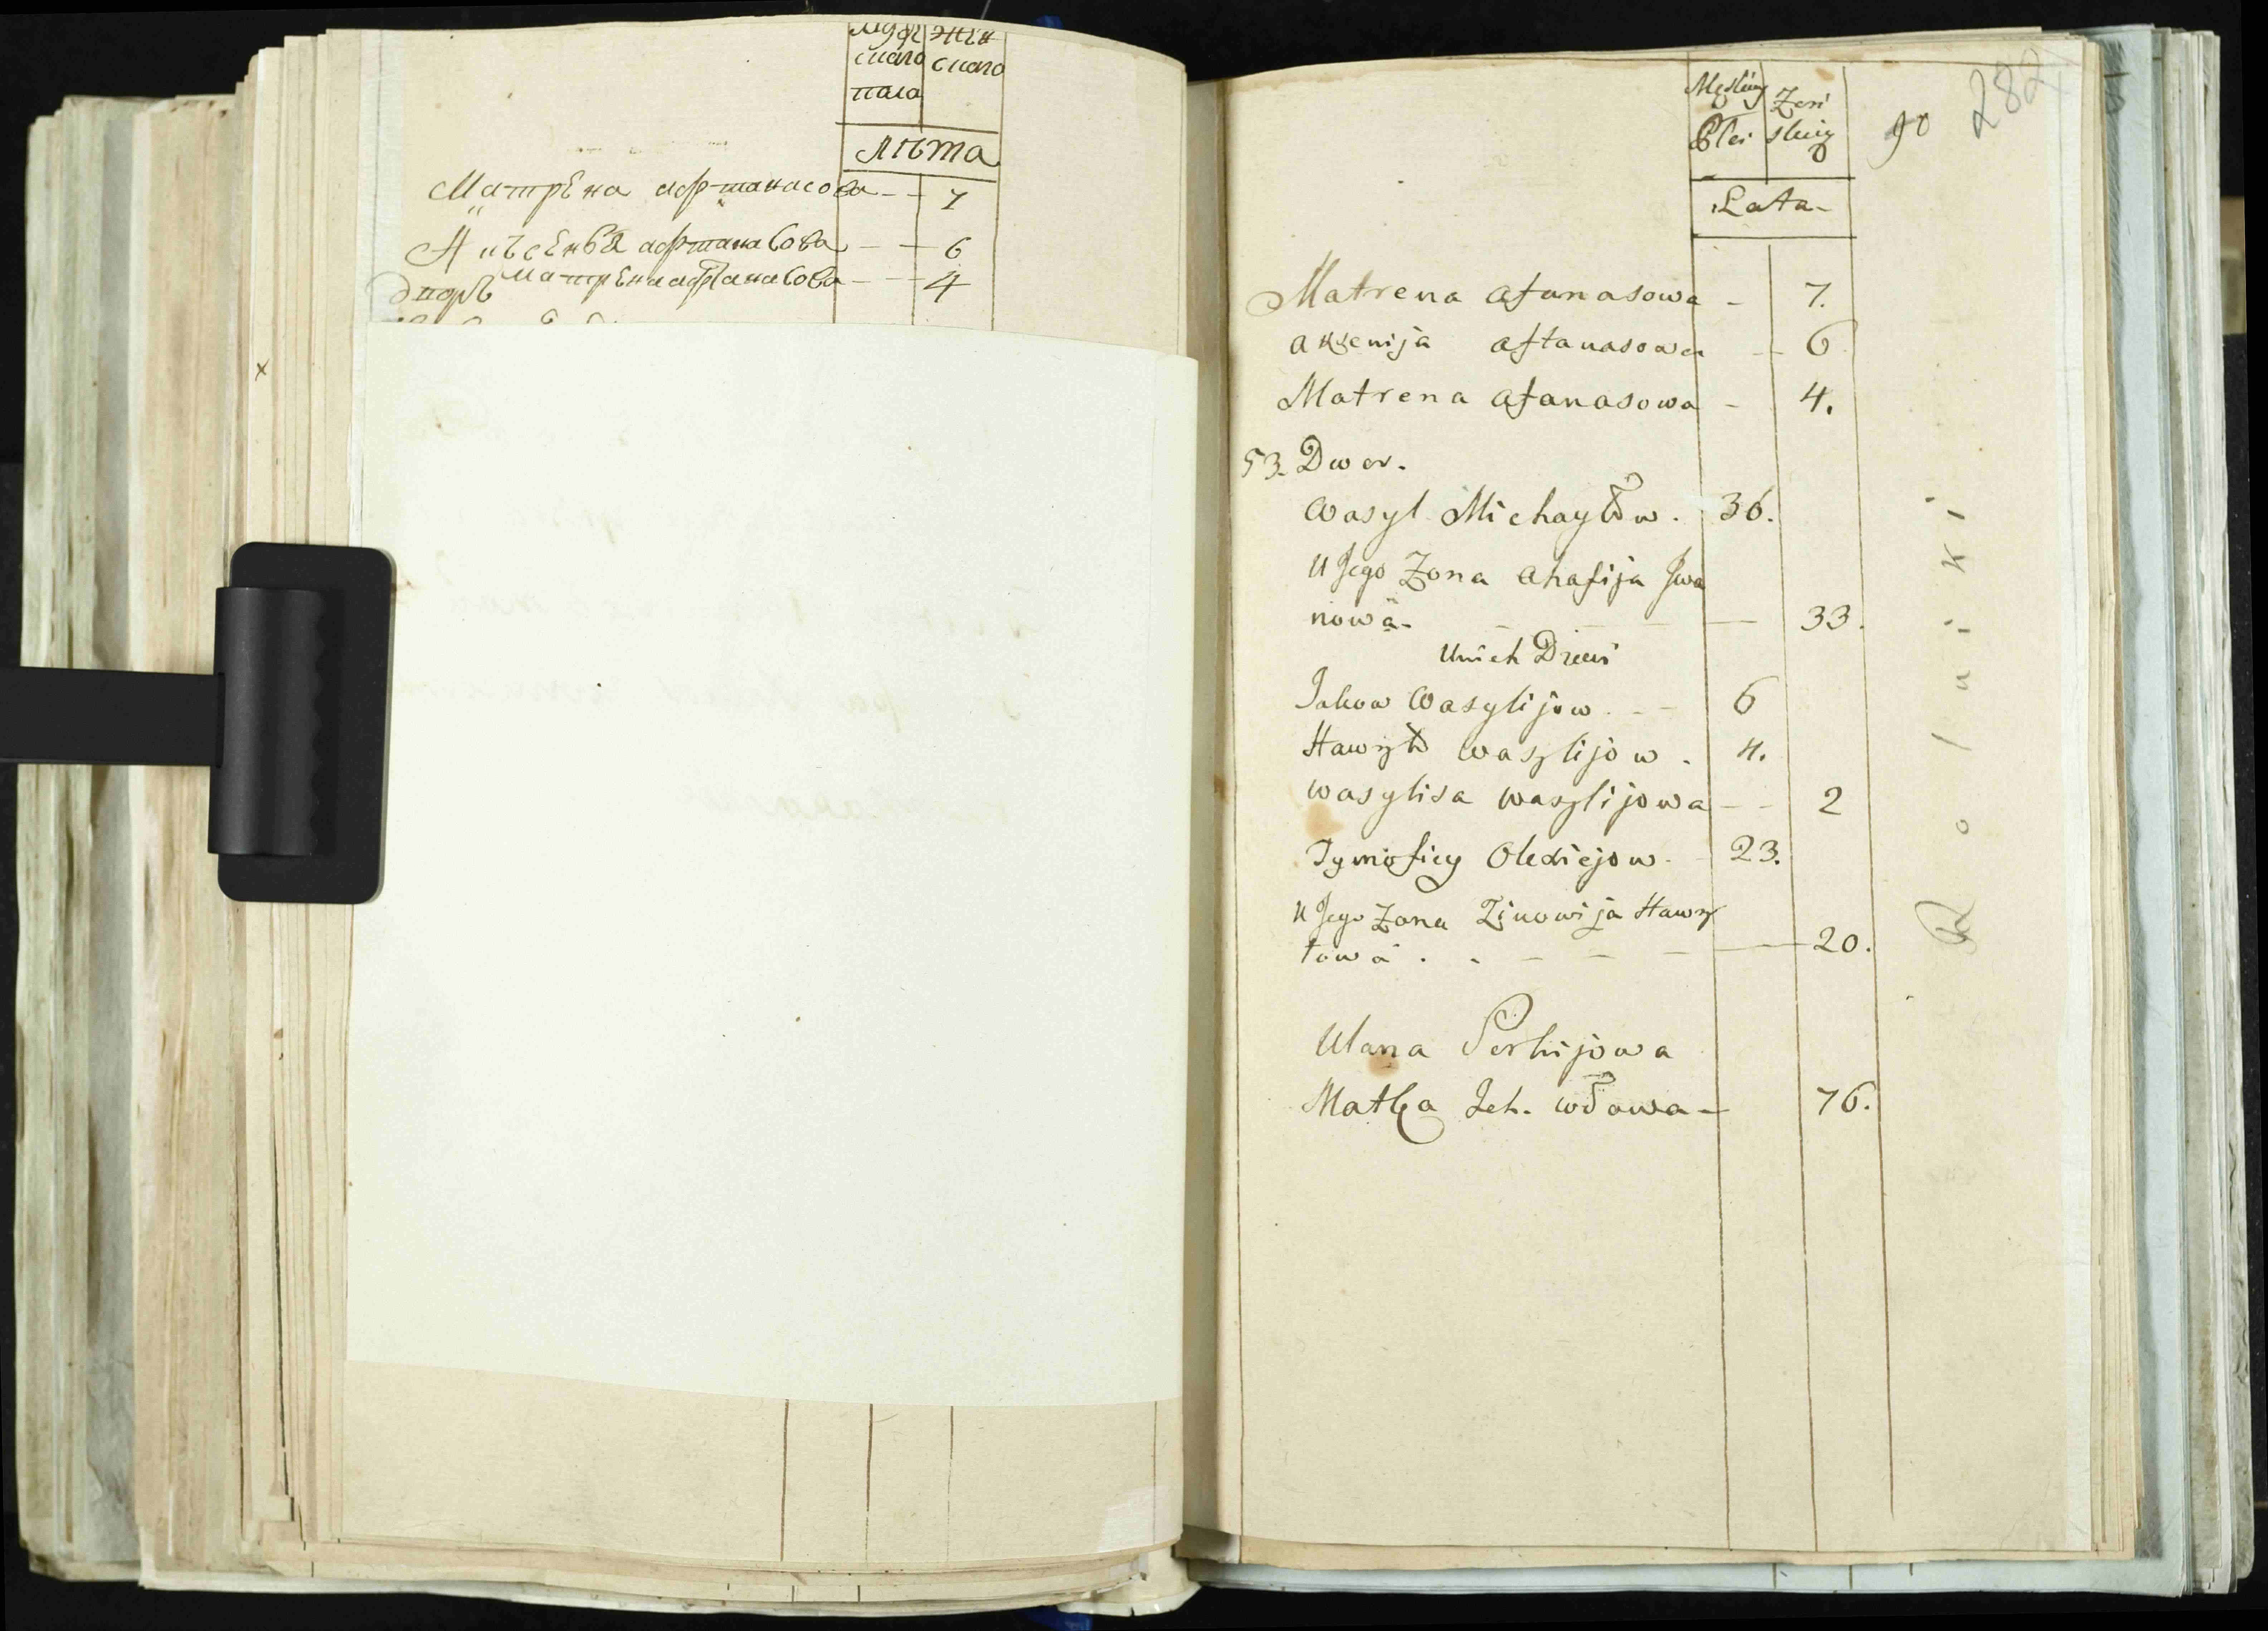 скаго скаго
пола
лѣта
Матрена афтанасова - - 7
Аксенья афтанасова - - 6
дворъ Матрена афтанасова - - 4
282
90
Męskiey Żeń
Płci skiey
Lata -
Matrena Afanasowa - 7.
Aksenija Aftanasowa - 6
Matrena Afanasowa - 4.
53. Dwor.
Wasyl Michayłow. 36.
U Jego Żona Ahafija Jwa
nowa - - - - 33.
U nich Dzieci
Jakow Wasylijow. - - 6
Hawryło Wasylijow. 4.
Wasylisa Wasylijowa - - 2
Tymofiey Olexiejow. - 23.
U Jego Żona Zinowija Hawry
łowa . . - - - - 20.
Ulana Serhijowa
Matka Ich. wdowa - 76.
Rolniki